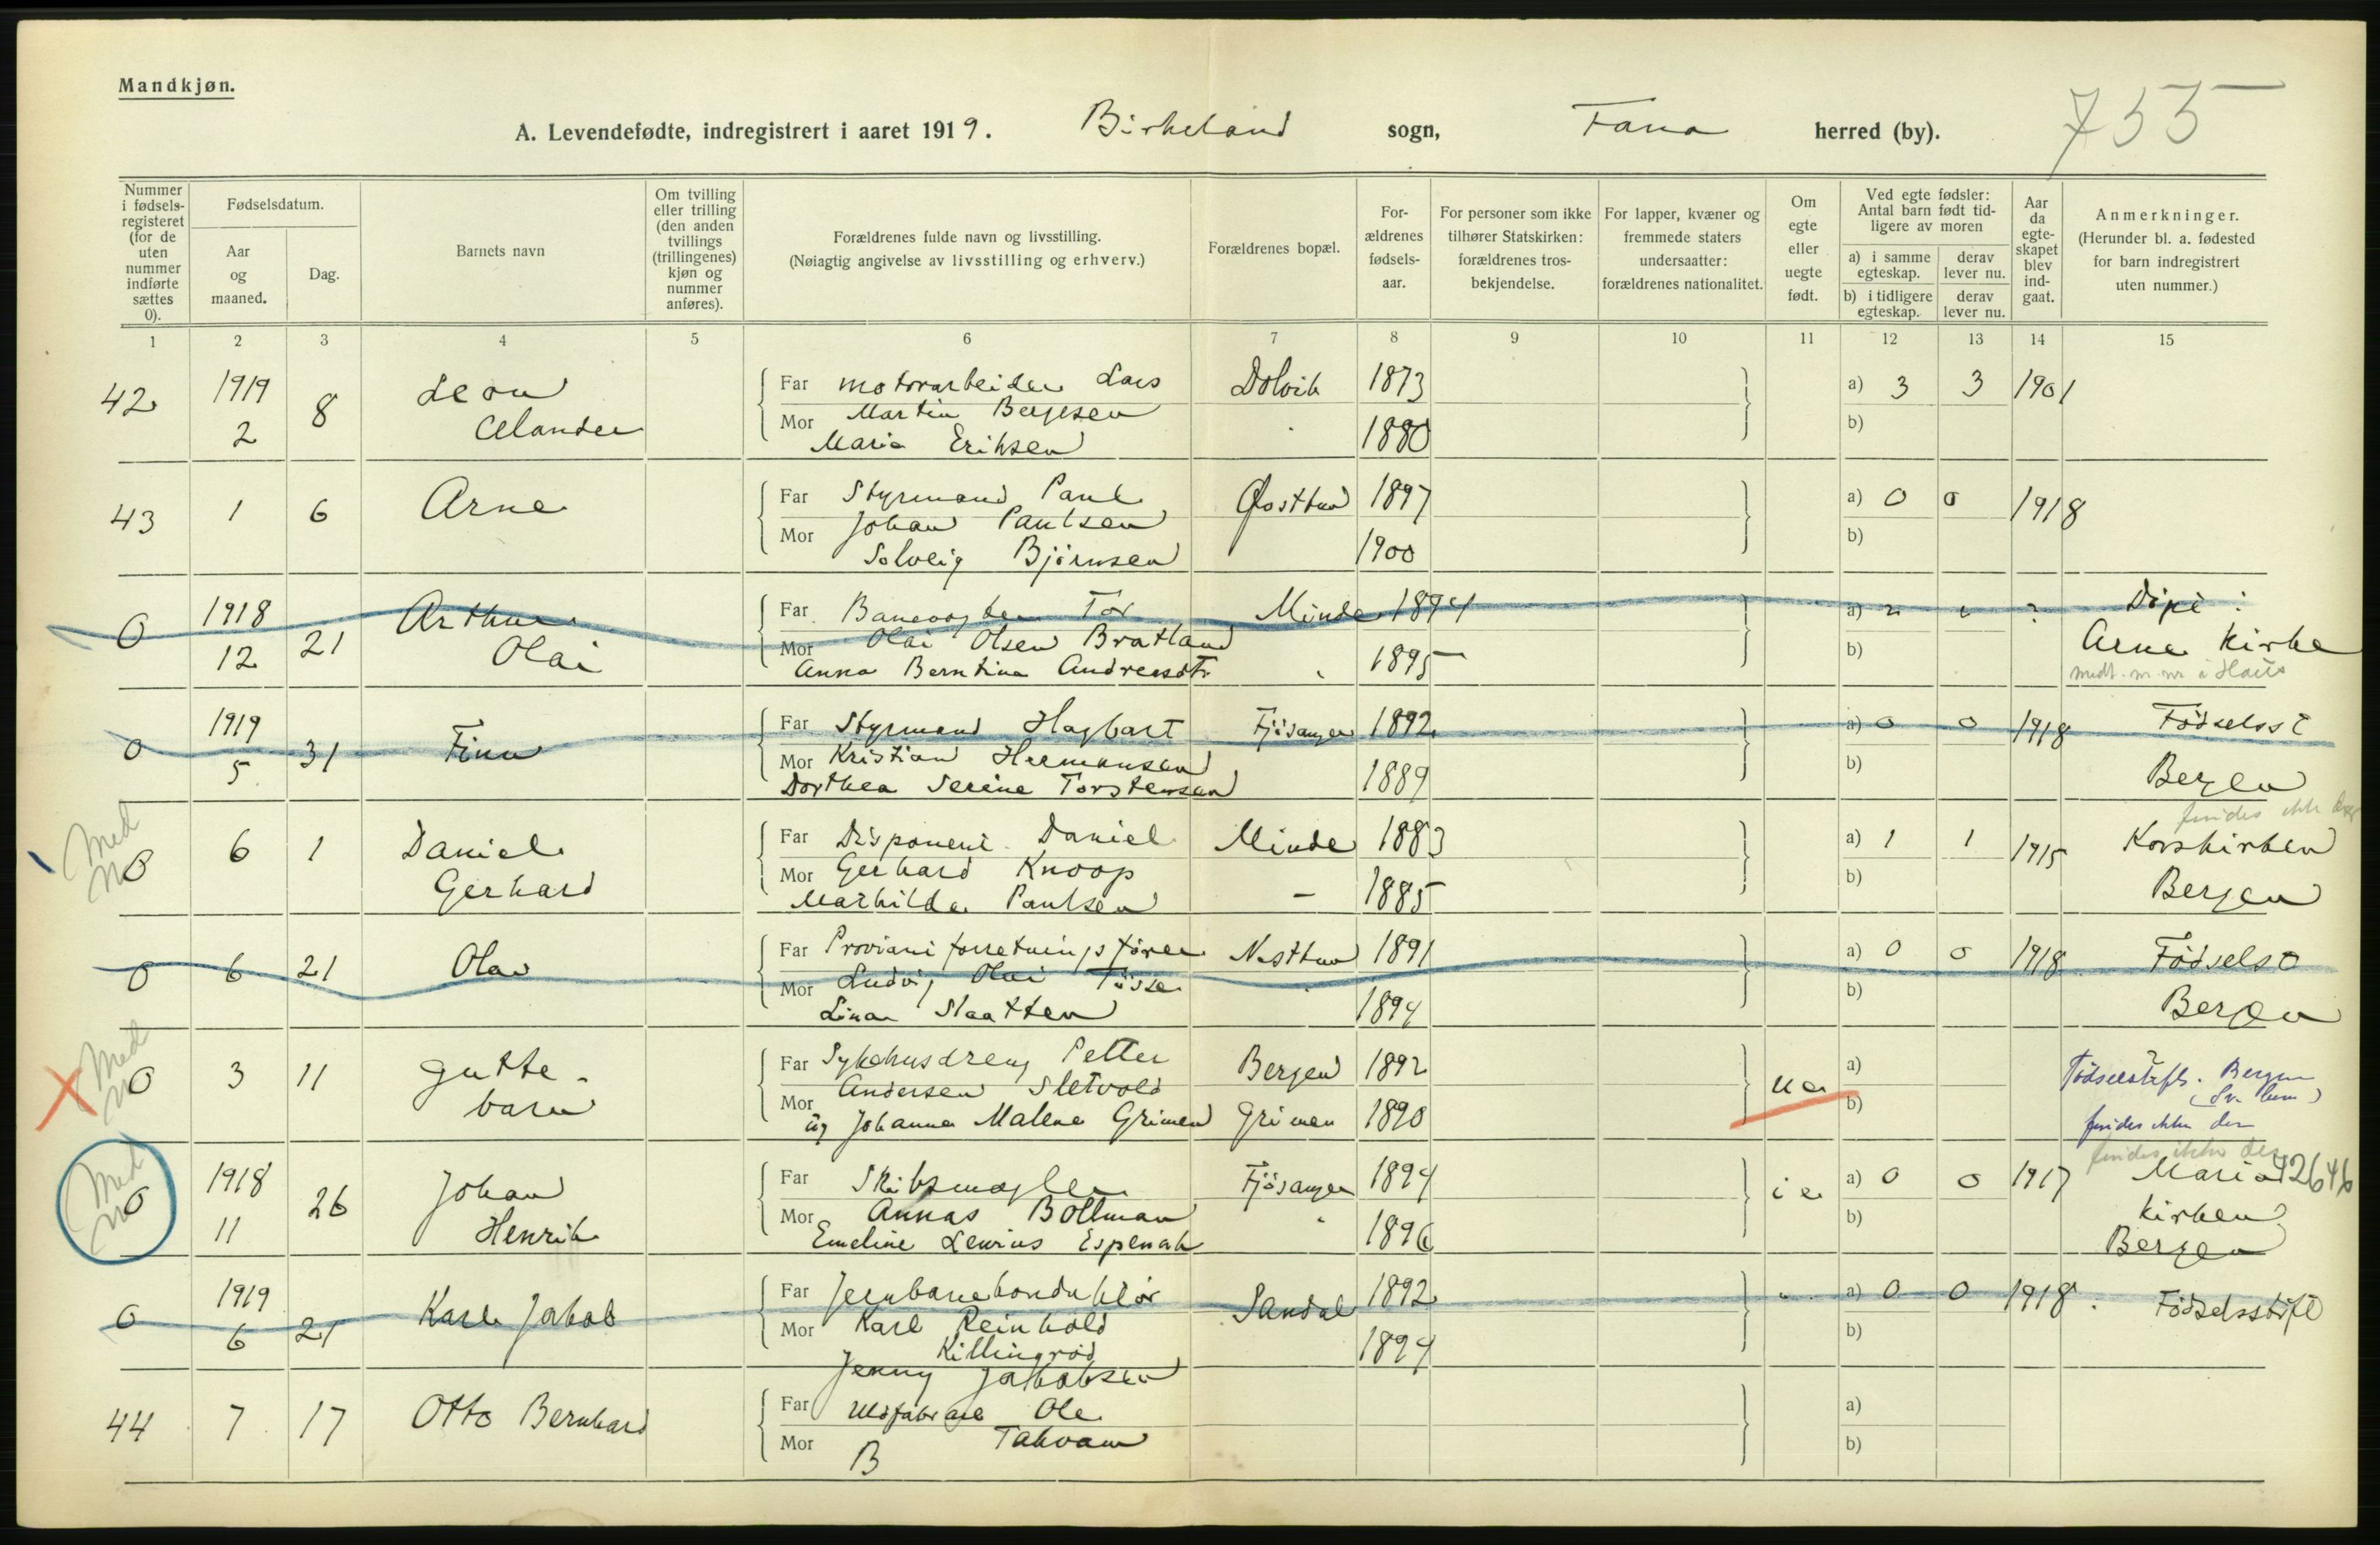 Mandkjøn.
A. Levendefødte, indregistrert i aaret 1919. Birkeland sogn, Fana herred (by). 755
Nummer i fødsels-registeret (for de uten nummer indførte sættes 0).
Fødselsdatum.
Aar og maaned.
Dag.
Barnets navn
Om tvilling eller trilling (den anden tvillings (trillingenes) kjøn og nummer anføres).
Forældrenes fulde navn og livsstilling.
(Nøiagtig angivelse av livsstilling og erhverv.)
Forældrenes bopæl.
For-ældrenes fødsels-aar.
For personer som ikke tilhører Statskirken: forældrenes tros-bekjendelse.
For lapper, kvæner og fremmede staters undersaatter: forældrenes nationalitet.
Om egte eller uegte født.
Ved egte fødsler: Antal barn født tid-ligere av moren
a) i samme egteskap. derav lever nu.
b) i tidligere egteskap. derav lever nu.
Aar da egte-skapet blev ind-gaat.
Anmerkninger.
(Herunder bl. a. fødested for barn indregistrert uten nummer.)
1 2 3 4 5 6 7 8 9 10 11 12 13 14 15
42 1919 2 8 Leon
Far motorarbeider Lars Dolvik 1873 a) 3 3 1901
Mor Martin Bergesen
Maria Eriksen 1880 b)
43 1 6 Arne
Far Styrmand Paul Østtun 1897 a) 0 0 1918
Mor Johan Paulsen
Solveig Bjørnsen 1900 b)
0 1918 12 21 Arthur Olai
Far Banevogter Tor Minde 1894 a) Døpt i
Mor Olai Olsen Bratland Arne Kirke
Anna Berntina Andreasdtr 1895 b)
0 1919 5 31 Finn
Far Styrmand Hagbart Fjøsanger 1892 a) 0 0 1918 Fødselsst
Mor Kristian Hermansen
Dorthea Serine Torstensen 1889 b) Bergen
findes ikke der
Med no
0 6 1 Daniel Gerhard
Far Disponent Daniel Minde 1883 a) 1 1 1915 Korskirken
Mor Gerhard Knoop
Mathilde Paulsen - 1885 b) Bergen
0 6 21 Olav
Far Proviantforretningsfører Nesttun 1891 a) 0 0 1918 Fødselso
Mor Ludvig Olai
Lina Slaatten 1894 b) Bergen
Med no
0 3 11 Gutte-barn
Far Sykehusdreng Petter Bergen 1892 ue a) Fødselstift. Bergen
Mor Andersen Sletvold
ug Johanna Malene Grimen Grimen 1890 b) findes ikke der
findes ikke der
Med no
0 1918 11 26 Johan Henrik
Far Skibsmægler Fjøsanger 1894 a) 0 0 1917 Maria 42646
Mor Annas Bollman kirken
Emeline Lewius Espenak 1896 b) Bergen
0 1919 6 21 Karl Jakob
Far Jernbanekonduktør Sandal 1892 a) 0 0 1918 Fødselsstift
Mor Karl Reinhold
Killingrød
Jenny Jakobsen 1894 b)
44 7 17 Otto Bernhard
Far Uldfabrare Ole a)
Mor Takvam b)
B